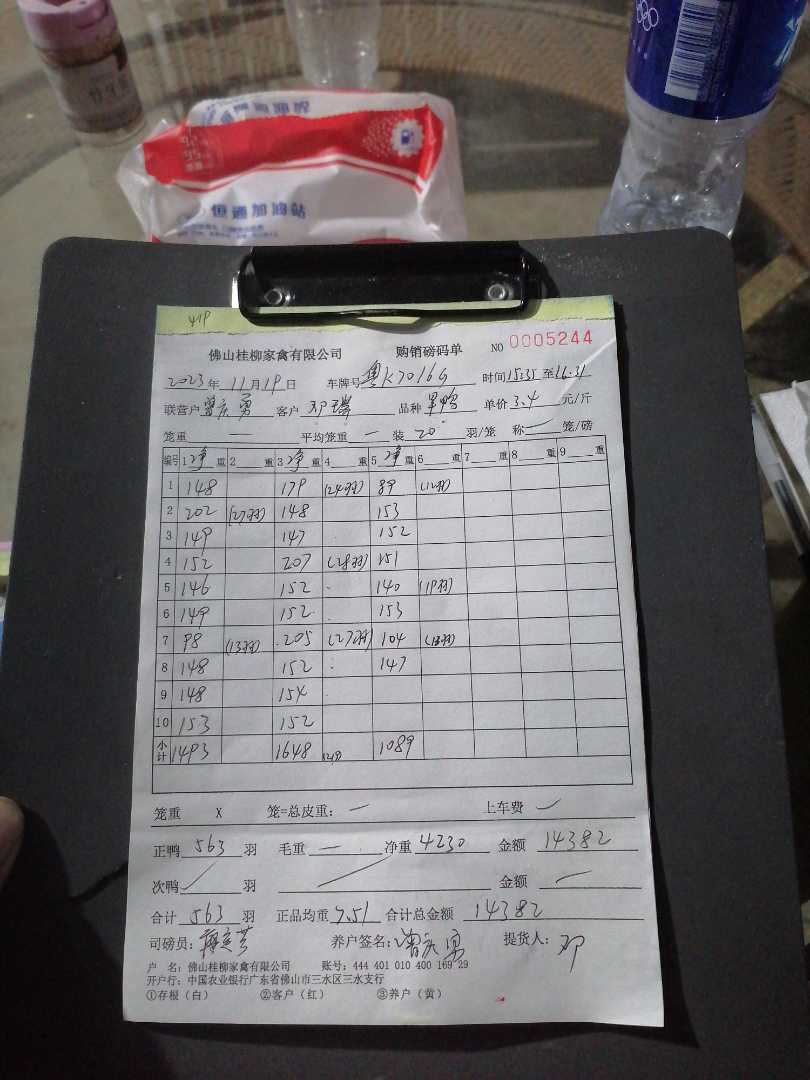 恒通加油站
419
佛山桂柳家禽有限公司 购销磅码单 NO 0005244
2023年11月19日 车牌号 粤K7016G 时间15:35至16:31
联营户 曾庆勇 客户 邓 品种 单价3.4元/斤
笼重 — 平均笼重 — 装 20 羽/笼 称 — 笼/磅
编号 1净重 2 重 3净重 4 重 5净重 6 重 7 重 8 重 9 重
1 148 179 (24羽) 89 (12羽)
2 202 (27羽) 148 153
3 149 147 152
4 152 207 (28羽) 151
5 146 152 140 (19羽)
6 149 152 153
7 98 (13羽) 205 (27羽) 104 (13羽)
8 148 152 147
9 148 154
10 153 152
小计 1493 1648 1089
笼重 X 笼=总皮重: — 上车费
正鸭 563 羽 毛重 — 净重 4230 金额 14382
次鸭 羽 金额 —
合计 563 羽 正品均重 7.51 合计总金额 14382
司磅员: 养户签名: 曾庆勇 提货人: 邓
户 名: 佛山桂柳家禽有限公司 账号: 444 401 010 400 169 29
开户行: 中国农业银行广东省佛山市三水区三水支行
①存根(白) ②客户(红) ③养户(黄)